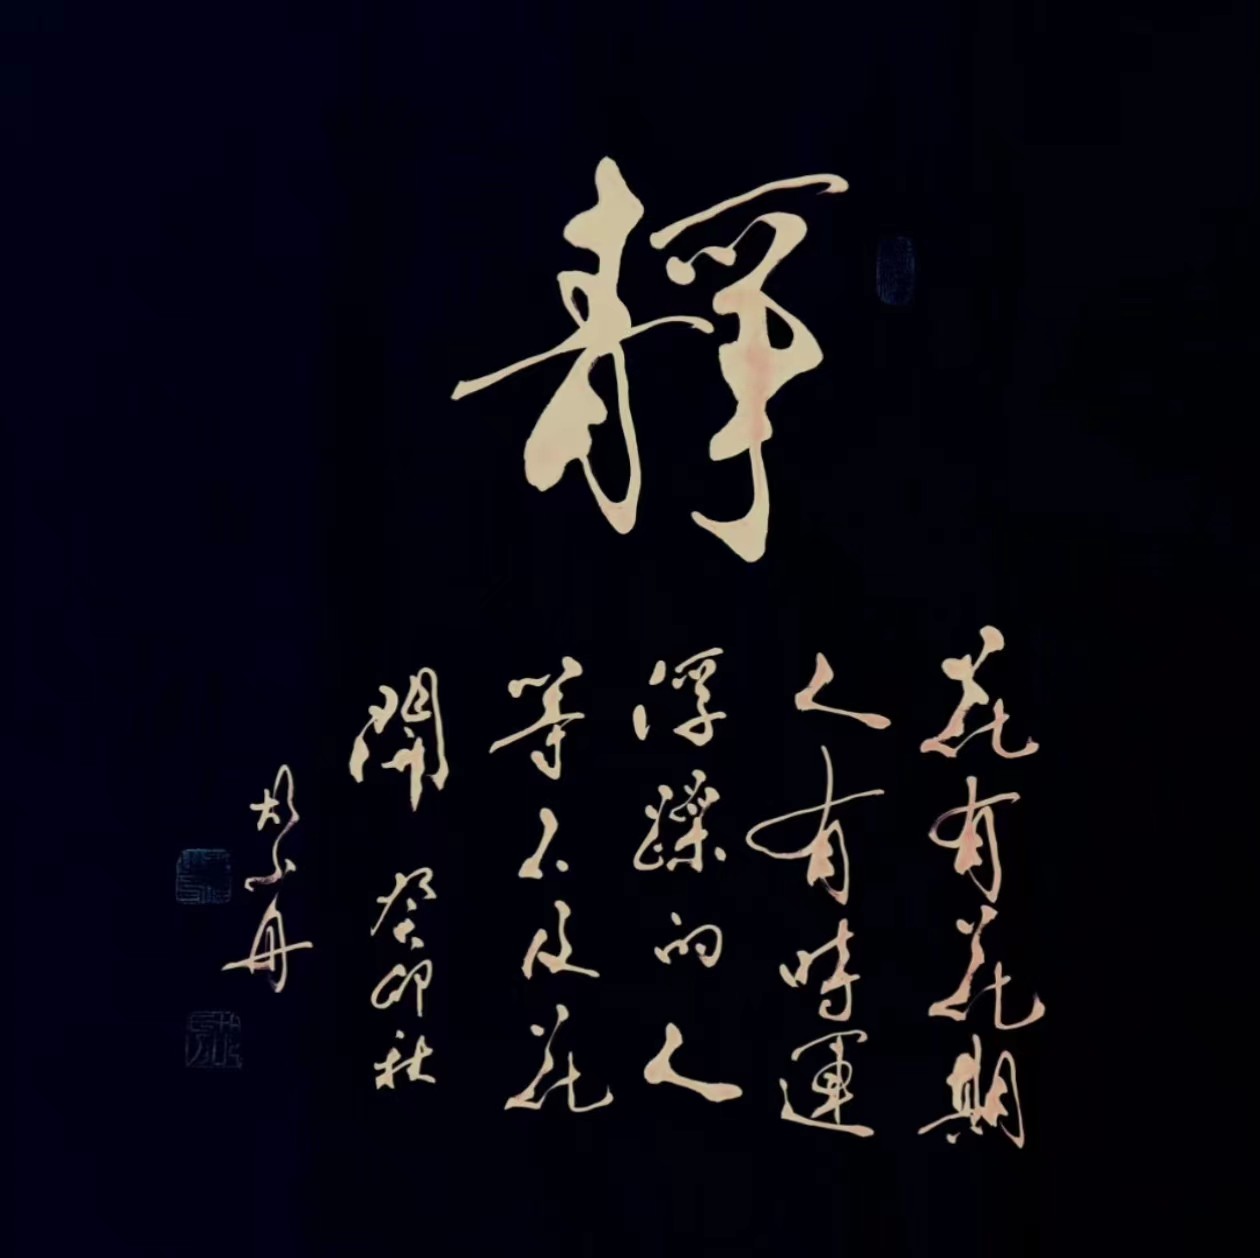 靜
花有花期
人有時運
浮躁的人
等不及花
開 癸卯秋